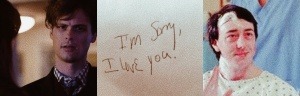 I'm Sorry,
I Love you.